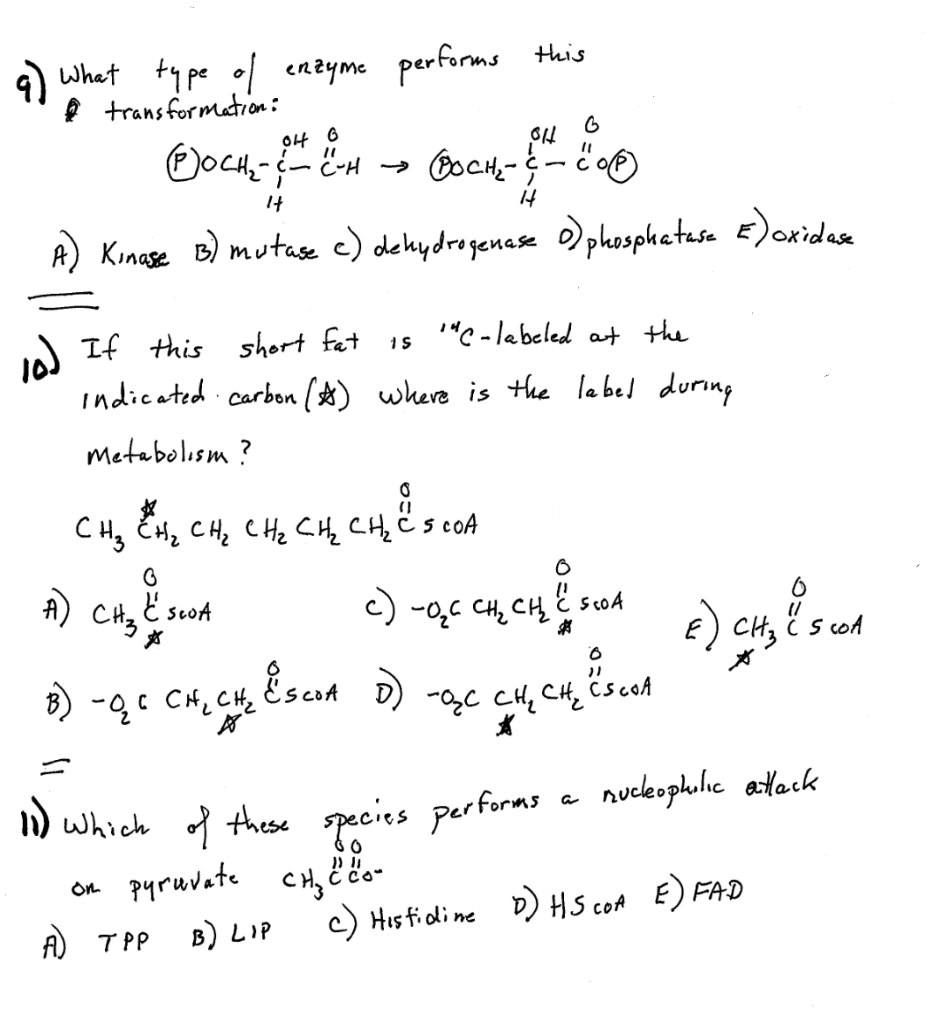 9) What type of enzyme performs this
transformation:
OH O OH O
(P)OCH₂-C-C-H → (P)OCH₂-C-CO(P)
H H
A) Kinase B) mutase C) dehydrogenase D) phosphatase E) oxidase
10) If this short fat is ¹⁴C-labeled at the
indicated carbon (☆) where is the label during
metabolism?
O
☆
CH₃ CH₂ CH₂ CH₂ CH₂ CH₂ C S COA
O O O
A) CH₃ C SCOA C) ⁻O₂C CH₂ CH₂ C SCOA E) CH₃ C S COA
☆ ☆ ☆
O O
B) ⁻O₂C CH₂ CH₂ C SCOA D) ⁻O₂C CH₂ CH₂ C SCOA
☆ ☆
11) Which of these species performs a nucleophilic attack
O O
on pyruvate CH₃ C CO⁻
A) TPP B) LIP C) Histidine D) HS COA E) FAD